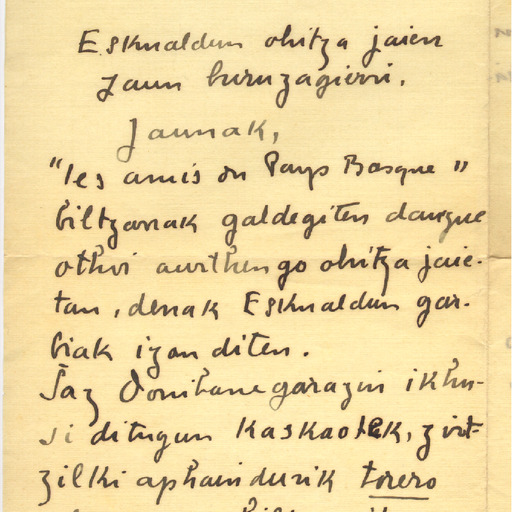 Eskualdun ohitza jaien
Jaun buruzagieri.
Jaunak,
"les amis du Pays Basque"
biltzarrak galdegiten dauzue
othoi aurthengo ohitza jaie-
tan, denak Eskualdun gar-
biak izan diten.
Jaz Donibane garazin ikhu-
si ditugun Kaskaotek, zirt-
zilki aphaindurik torero